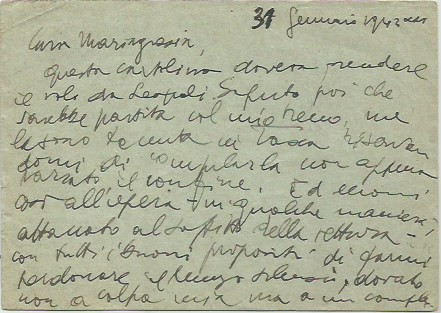 31 Gennaio 1942 XX
Cara Mariagrazia,
questa cartolina doveva prendere
il volo da Leopoli. Saputo poi che
sarebbe partita col mio treno, me
la sono tenuta in tasca
domi di compilarla non appena
varcato il confine. Ed eccomi
così all'opera - in qualche maniera,
al soffitto della vettura -
con tutti i buoni propositi di farmi
perdonare il lungo silenzio, dovuto
non a colpa mia ma a un